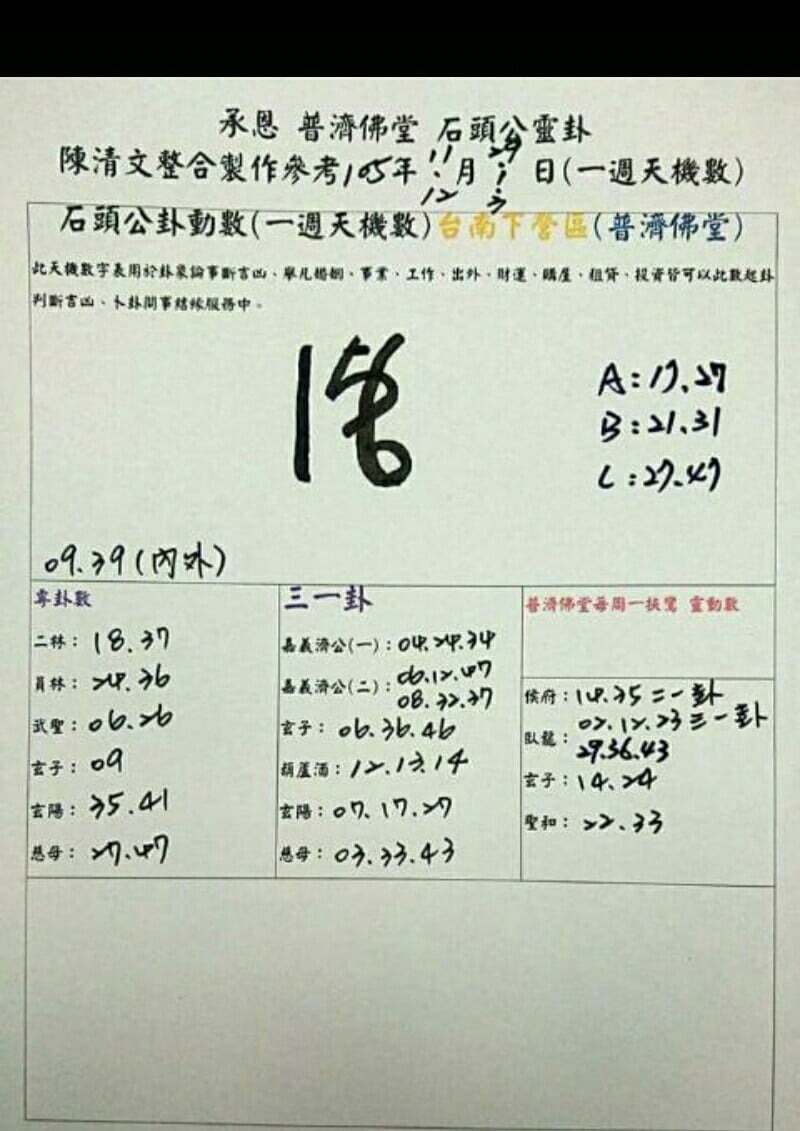 承恩 普濟佛堂 石頭公靈卦
陳清文整合製作參考105年11.12月29.3日(一週天機數)
石頭公卦動數(一週天機數)台南下營區(普濟佛堂)
此天機數字表用於卦象論事斷吉凶、舉凡婚姻、事業、工作、出外、財運、購屋、租貸、投資皆可以此數起卦
判斷吉凶、卜卦問事結緣服務中。
A:17.27
B:21.31
C:27.47
09.39(內外)
專卦數
二林:18.37
員林:24.36
武聖:06.26
玄子:09
玄陽:35.41
慈母:27.47
三一卦
嘉義濟公(一):04.24.34
嘉義濟公(二):06.12.47
08.32.37
玄子:06.36.46
葫蘆酒:12.13.14
玄陽:07.17.27
慈母:03.33.43
普濟佛堂每周一扶鸞 靈動數
侯府:14.35二一卦
臥龍:02.12.23三一卦
29.36.43
玄子:14.24
聖和:22.33